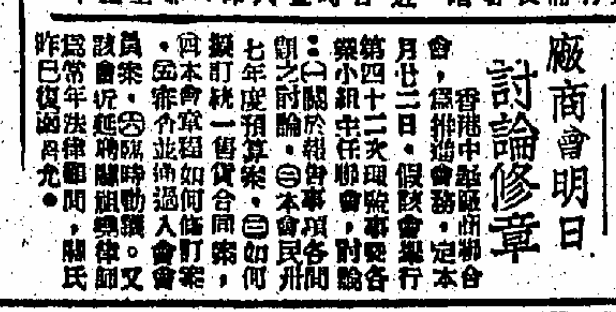 廠商會明日
討論修章
香港中華廠商聯合
會，為推進會務，定本
月廿二日，假該會舉行
第四十二次理監事暨各
級小組主任聯會，討論
：㊀關於報告事項各問
題之討論。㊁本會民卅
七年度預算案。㊂如何
擬訂統一售貨合同案，
㊃本會章程如何修訂案
。㊄審查並通過入會會
員案。㊅臨時動議。又
該會近延聘關祖堯律師
為常年法律顧問，關氏
昨已復函召允。